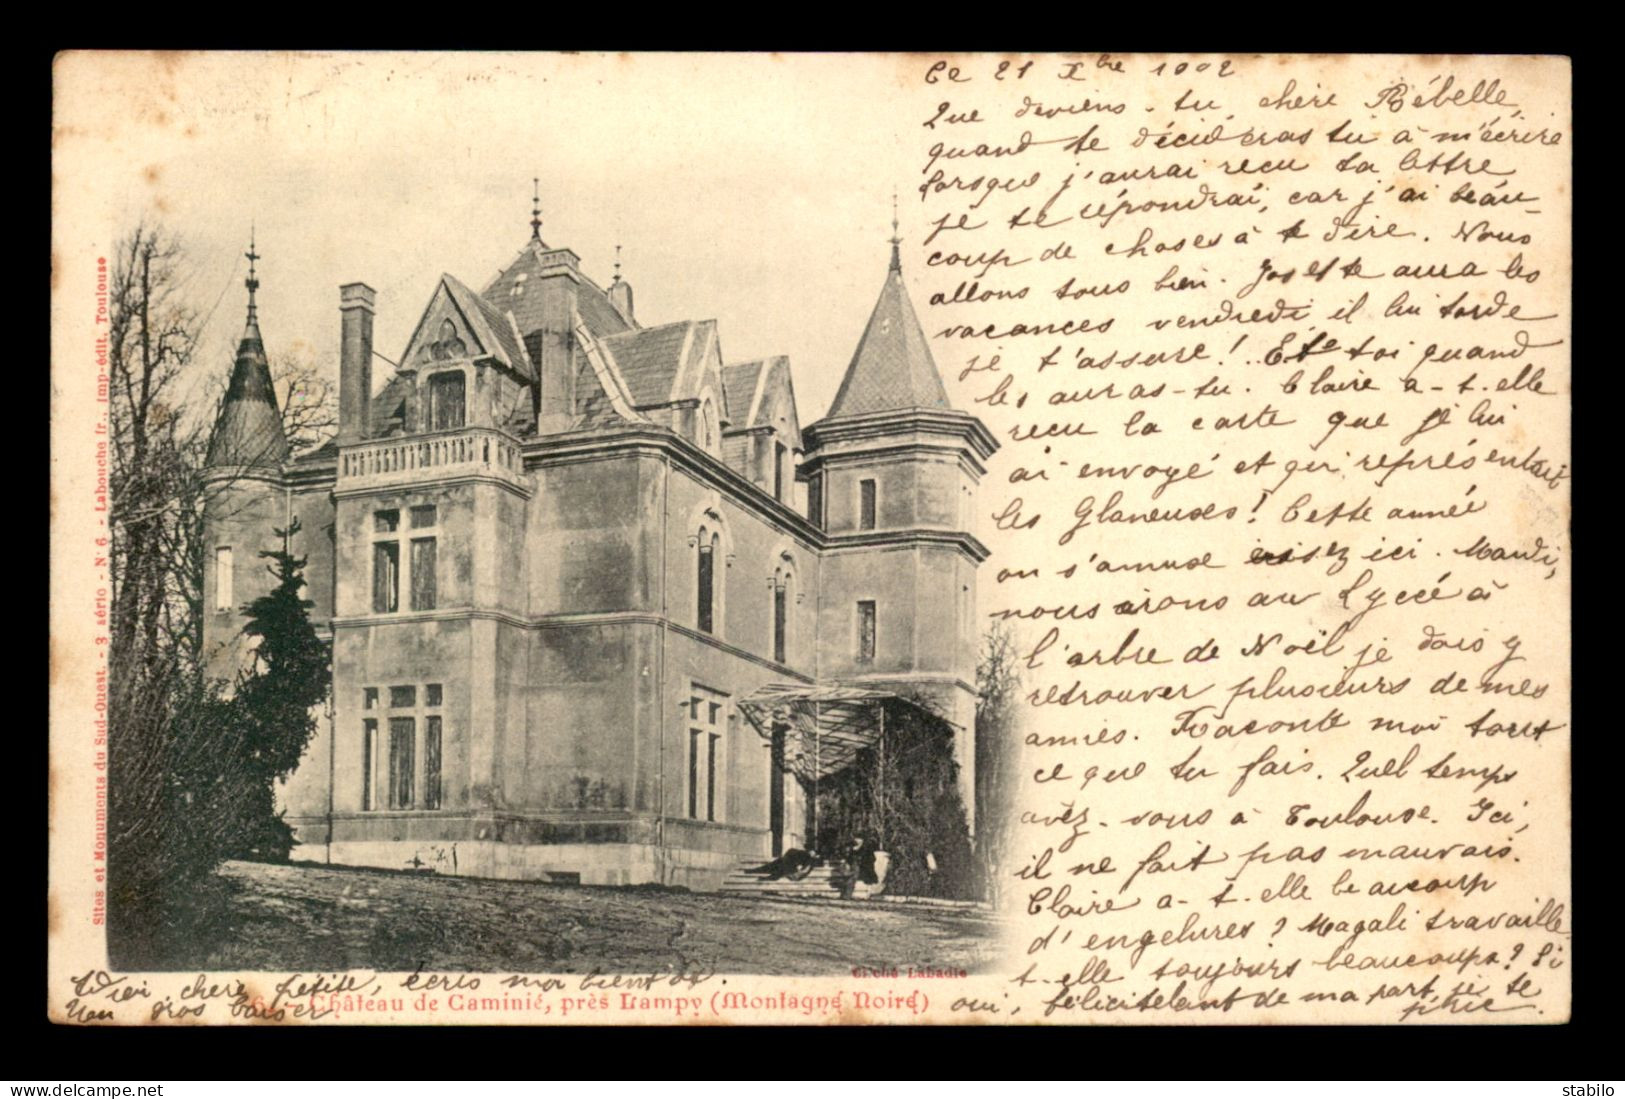 Ce 21 Xbre 1902
Que deviens-tu, chère Rébelle,
quand te décideras tu à m'écrire
lorsque j'aurai recu ta lettre
je te répondrai, car j'ai beau-
coup de choses à te dire. Nous
allons tous bien. Josette aura les
vacances vendredi il lui tarde
je t'assure!.. Et toi quand
les auras-tu. Claire a-t-elle
recu la carte que je lui
ai envoyé et qui représentait
les Glaneuses! Cette année
on s'amuse assez ici. Mardi,
nous irons au Lycée à
l'arbre de Noël je dois y
retrouver plusieurs de mes
amies. Raconte moi tout
ce que tu fais. Quel temps
avez-vous à Toulouse. Ici,
il ne fait pas mauvais.
Claire a-t-elle beaucoup
d'engelures? Magali travaille
t-elle toujours beaucoup? Si
oui, félicite la de ma part je te
prie.
chère petite, écris moi bientôt.
Un gros baiser
Sites et Monuments du Sud-Ouest. - 3 série - N° 6 - Labouche fr., imp-édit., Toulouse
Cliché Labadie
6 - Château de Caminié, près Lampy (Montagne Noire)
stabilo